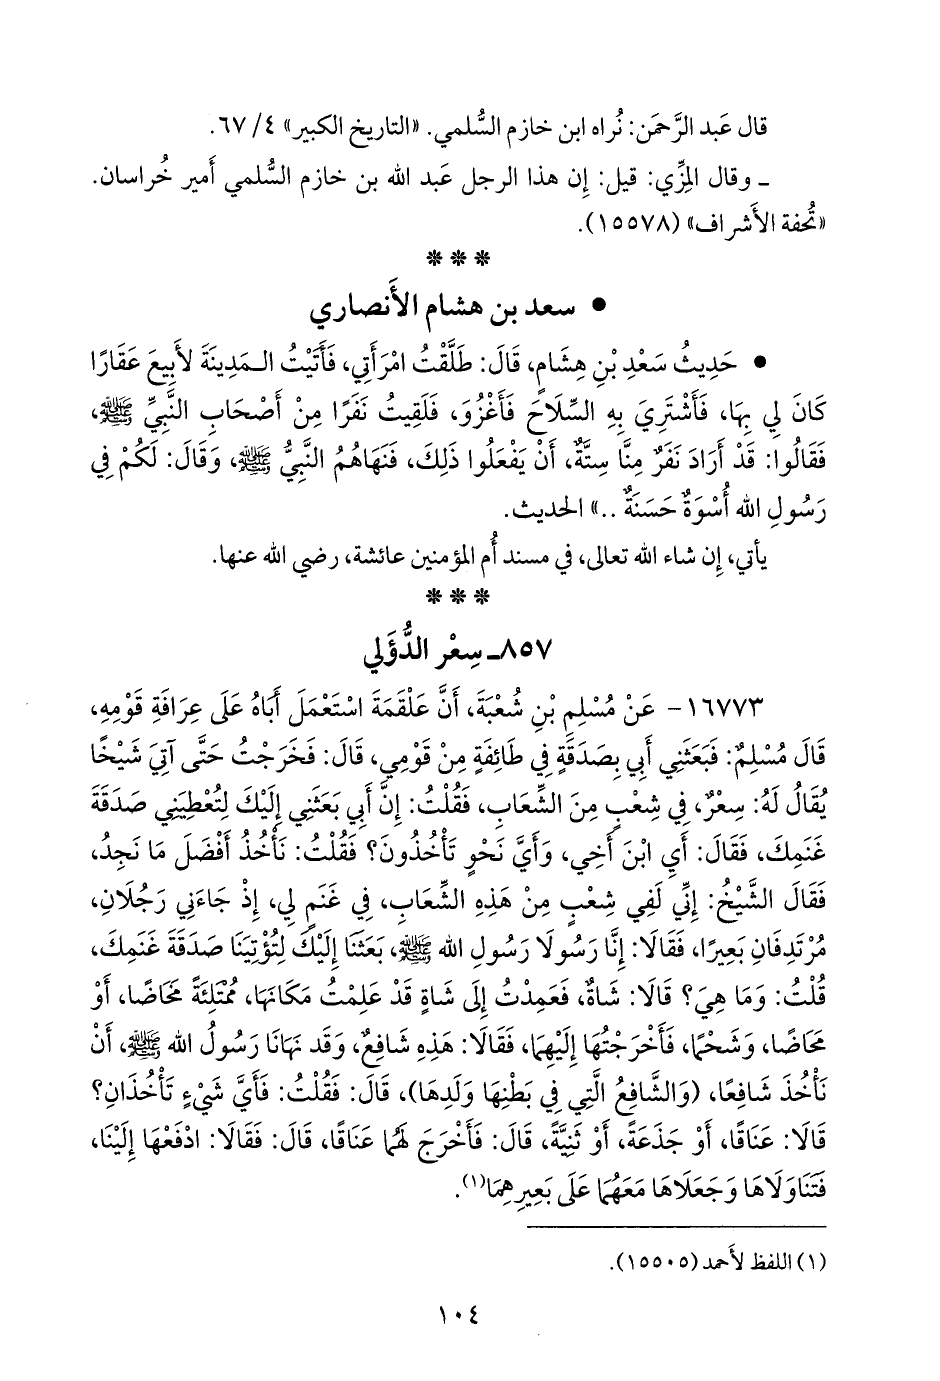 قال عَبد الرَّحمَن: نُراه ابن خازم السُّلمي. «التاريخ الكبير» ٤/ ٦٧.
ـ وقال المِزِّي: قيل: إِن هذا الرجل عَبد الله بن خازم السُّلمي أَمير خُراسان.
«تُحفة الأَشراف» (١٥٥٧٨).
* * *
• سعد بن هشام الأَنصاري
• حَدِيثُ سَعْدِ بْنِ هِشَامٍ، قَالَ: طَلَّقْتُ امْرَأَتِي، فَأَتَيْتُ الـمَدِينَةَ لأَبِيعَ عَقَارًا
كَانَ لِي بِهَا، فَأَشْتَرِيَ بِهِ السِّلَاحَ فَأَغْزُوَ، فَلَقِيتُ نَفَرًا مِنْ أَصْحَابِ النَّبِيِّ ﷺ،
فَقَالُوا: قَدْ أَرَادَ نَفَرٌ مِنَّا سِتَّةٌ، أَنْ يَفْعَلُوا ذَلِكَ، فَنَهَاهُمُ النَّبِيُّ ﷺ، وَقَالَ: لَكُمْ فِي
رَسُولِ الله أُسْوَةٌ حَسَنَةٌ ..» الحديث.
يأتي، إِن شاء الله تعالى، في مسند أُم المؤمنين عائشة، رضي الله عنها.
* * *
٨٥٧ـ سِعْر الدُّؤَلي
١٦٧٧٣- عَنْ مُسْلِمِ بْنِ شُعْبَةَ، أَنَّ عَلْقَمَةَ اسْتَعْمَلَ أَبَاهُ عَلَى عِرَافَةِ قَوْمِهِ،
قَالَ مُسْلِمٌ: فَبَعَثَنِي أَبِي بِصَدَقَةٍ فِي طَائِفَةٍ مِنْ قَوْمِي، قَالَ: فَخَرَجْتُ حَتَّى آتِيَ شَيْخًا
يُقَالُ لَهُ: سِعْرٌ، فِي شِعْبٍ مِنَ الشِّعَابِ، فَقُلْتُ: إِنَّ أَبِي بَعَثَنِي إِلَيْكَ لِتُعْطِيَنِي صَدَقَةَ
غَنَمِكَ، فَقَالَ: أَيِ ابْنَ أَخِي، وَأَيَّ نَحْوٍ تَأْخُذُونَ؟ فَقُلْتُ: نَأْخُذُ أَفْضَلَ مَا نَجِدُ،
فَقَالَ الشَّيْخُ: إِنِّي لَفِي شِعْبٍ مِنْ هَذِهِ الشِّعَابِ، فِي غَنَمٍ لِي، إِذْ جَاءَنِي رَجُلَانِ،
مُرْتَدِفَانِ بَعِيرًا، فَقَالَا: إِنَّا رَسُولَا رَسُولِ الله ﷺ، بَعَثَنَا إِلَيْكَ لِتُؤْتِيَنَا صَدَقَةَ غَنَمِكَ،
قُلْتُ: وَمَا هِيَ؟ قَالَا: شَاةٌ، فَعَمِدْتُ إِلَى شَاةٍ قَدْ عَلِمْتُ مَكَانَهَا، مُمْتَلِئَةً مَخَاضًا، أَوْ
مَحَاضًا، وَشَحْمًا، فَأَخْرَجْتُهَا إِلَيْهِمَا، فَقَالَا: هَذِهِ شَافِعٌ، وَقَد نَهَانَا رَسُولُ الله ﷺ، أَنْ
نَأْخُذَ شَافِعًا، (وَالشَّافِعُ الَّتِي فِي بَطْنِهَا وَلَدِهَا)، قَالَ: فَقُلْتُ: فَأَيَّ شَيْءٍ تَأْخُذَانِ؟
قَالَا: عَنَاقًا، أَوْ جَذَعَةً، أَوْ ثَنِيَّةً، قَالَ: فَأَخْرَجَ لَهُمَا عَنَاقًا، قَالَ: فَقَالَا: ادْفَعْهَا إِلَيْنَا،
فَتَنَاوَلَاهَا وَجَعَلَاهَا مَعَهُمَا عَلَى بَعِيرِهِمَا(١).
(١) اللفظ لأَحمد (١٥٥٠٥).
١٠٤